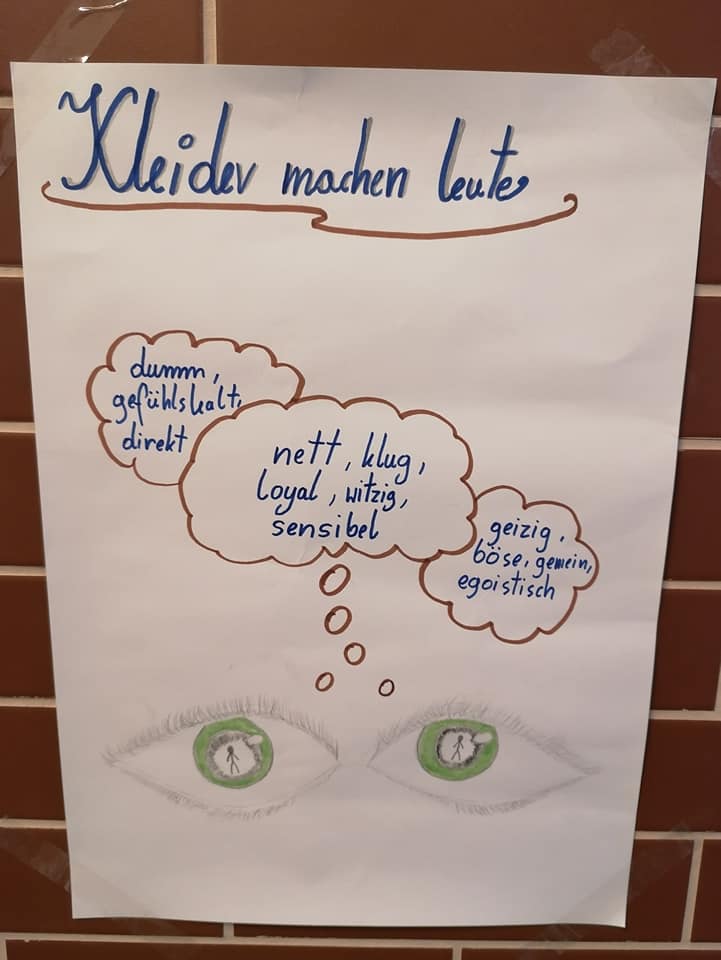 Kleider machen leute
dumm,
gefühlskalt,
direkt
nett, klug,
loyal, witzig,
sensibel
geizig,
böse, gemein,
egoistisch